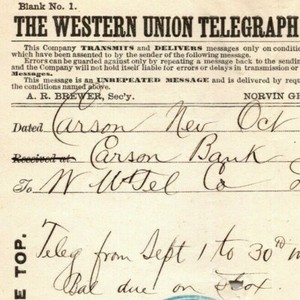 Blank No. 1.
THE WESTERN UNION TELEGRAPH
This Company TRANSMITS and DELIVERS messages only on condi
which have been assented to by the sender of the following message.
Errors can be guarded against only by repeating a message back to the sending
and the Company will not hold itself liable for errors or delays in transmission or
Messages.
This message is an UNREPEATED MESSAGE and is delivered by reque
the conditions named above.
A. R. BREWER, Sec'y. NORVIN GR
Dated Carson Nev Oct
Received at Carson Bank
To W U Tel Co
Teleg from Sept 1 to 30th
Bal due on
E TOP.